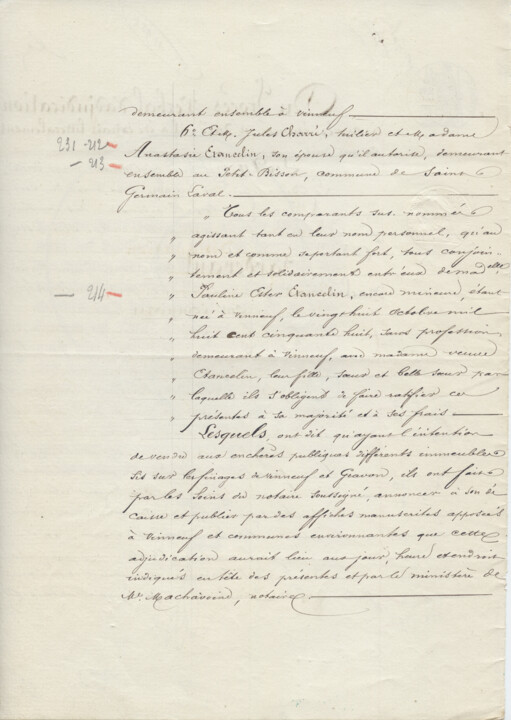 demeurant ensemble à Vinneuf
6° Et M. Jules Charré, tuilier et Madame
231 - 212
Anastasie Etancelin, son épouse qu'il autorise, demeurant
- 213
ensemble au Petit-Bisson, commune de Saint
Germain Laval.
" Tous les comparants sus-nommés
" agissant tant en leur nom personnel, qu'au
" nom et comme se portant fort, tous conjoin-
" tement et solidairement entr'eux de Madelle
- 214
" Pauline Ester Etancelin, encore mineure, étant
" née à Vinneuf, le vingt huit octobre mil
" huit cent cinquante huit, sans profession,
" demeurant à Vinneuf, avec madame veuve
" Etancelin, leur fille, sœur et belle sœur par
" laquelle ils s'obligent de faire ratifier ces
" présentes à sa majorité et à ses frais
Lesquels, ont dit qu'ayant l'intention
de vendre aux enchères publiques différents immeubles
sis sur les finages de Vinneuf et Gravon, ils ont fait
par les soins du notaire soussigné, annoncer à son de
caisse et publier par des affiches manuscrites apposées
à Vinneuf et communes environnantes que cette
adjudication aurait lieu aux jour, heure et endroit
indiqués en tête des présentes et par le ministère de
Me. Machavoine, notaire